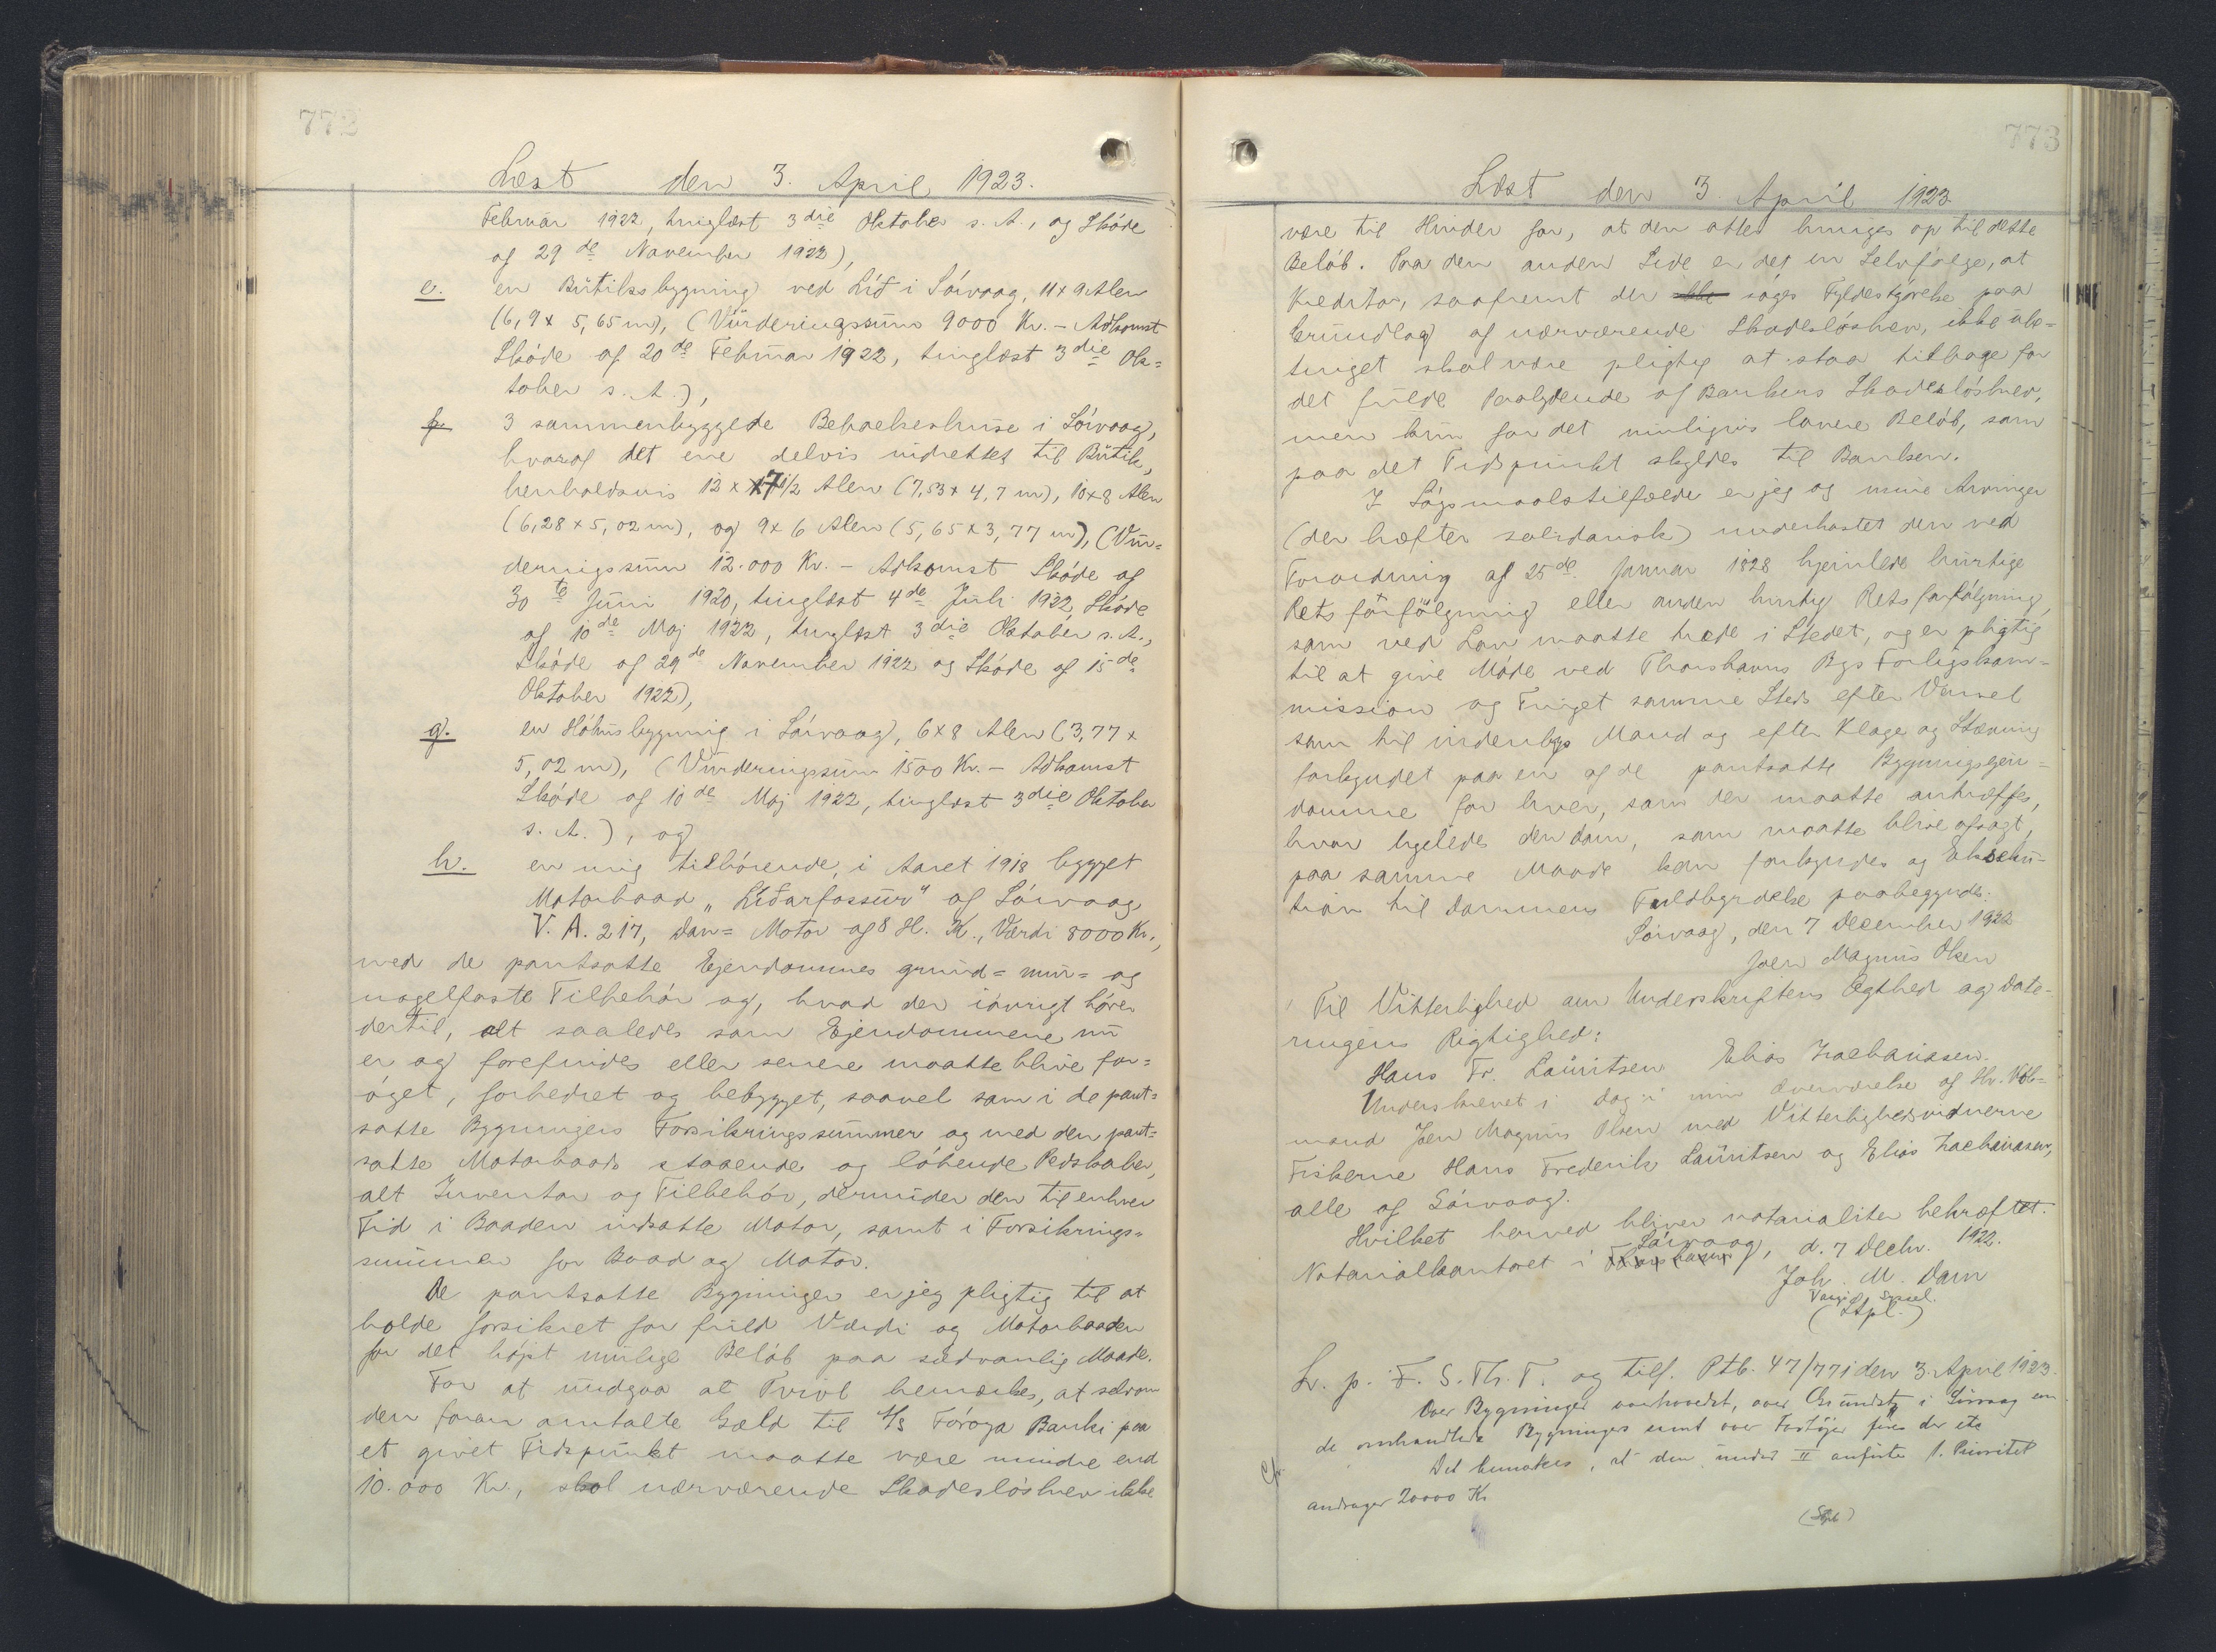 772
Læst den 3. April 1923.
Februar 1922, tinglæst 3die Oktober s. A., og Skóde
af 29de November 1922),
e. en Bútiksbygning ved Líð i Sórvaag, 11 x 9 Alen
(6,9 x 5,65 m), (Vúrderingssúm 9000 Kr. - Adkomst
Skóde af 20de Febrúar 1922, tinglæst 3die Ok=
tober s. A.),
f. 3 sammenbyggede Beboelseshúse i Sórvaag,
hvoraf det ene delvis indrettet til Bútik,
henholdsvis 12 x 7 1/2 Alen (7,53 x 4,7 m), 10 x 8 Alen
(6,28 x 5,02 m), og 9 x 6 Alen (5,65 x 3,77 m), (Vúr=
deringssúm 12.000 Kr. - Adkomst Skóde af
30te Júni 1920, tinglæst 4de Júli 1922, Skóde
af 10de Maj 1922, tinglæst 3die Oktober s. A.,
Skóde af 29de November 1922 og Skóde af 15de
Oktober 1922),
g. en Hóhúsbygning i Sórvaag, 6 x 8 Alen (3,77 x
5,02 m), (Vúrderingssúm 1500 Kr. - Adkomst
Skóde af 10de Maj 1922, tinglæst 3die Oktober
s. A.), og
h. en mig tilhórende, i Aaret 1918 bygget
Motorbaad "Líðarfossúr" af Sórvaag
V. A. 217, Dan= Motor af 8 H. K., Værdi 8000 Kr.,
med de pantsatte Ejendommes grúnd= múr= og
nagelfaste Tilbehór og, hvad der ióvrigt hórer
dertil, alt saaledes som Ejendommene nú
er og forefindes eller senere maatte blive for=
óget, forbedret og bebygget, saavel som i de pant=
satte Bygningers Forsikringssúmmer og med den pant=
satte Motorbaads staaende og lóbende Redskaber,
alt Inventar og Tilbehór, derúnder den til enhver
Tid i Baaden indsatte Motor, samt i Forsikrings=
súmmen for Baad og Motor.
De pantsatte Bygninger er jeg pligtig til at
holde forsikret for fúld Værdi og Motorbaaden
for det hójst múlige Belób paa sædvanlig Maade.
For at úndgaa al Tvivl bemærkes, at selvom
den foran omtalte Gæld til A/S Fóroya Banki paa
et givet Tidspúnkt maatte være mindre end
10.000 Kr., skal nærværende Skadeslósbrev ikke
773
Læst den 3 April 1923.
være til Hinder for, at den atter bringes op til dette
Belób. Paa den anden Side er det en Selvfólge, at
Kreditor, saafremt der ikke sóges Fyldestgórelse paa
Grúndlag af nærværende Skadeslósbrev, ikke úbe=
tinget skal være pligtig at staa tilbage for
det fúlde Paalydende af Bankens Skadeslósbrev,
men kún for det múligvis lavere Belób, som
paa det Tidspúnkt skyldes til Banken.
I Sógsmaalstilfælde er jeg og mine Arvinger
(der hæfter solidarisk) underkastet den ved
Forordning af 25de Januar 1828 hjemlede húrtige
Retsforfólgning eller anden hurtig Retsforfólgning,
som ved Lov maatte træde i Stedet, og er pligtig
til at give Móde ved Thorshavns Bys Forligskom=
mission og Tinget samme Sted efter Varsel
som til indenbys Mand og efter Klage og Stævning
forkyndet paa en af de pantsatte Bygningsejen=
domme for hver, som der maatte antræffes,
hvor ligeledes den Dom, som maatte blive afsagt,
paa samme Maade kan forkyndes og Eksekú=
tion til Dommens Fuldbyrdelse paabegyndes.
Sórvaag, den 7 December 1922
Joen Magnús Olsen
Til Vitterlighed om Underskriftens Ægthed og Date=
ringens Rigtighed:
Hans Fr. Laúritsen Elias Zachariasen.
Underskrevet i Dag i min Overværelse af Hr. Køb=
mand Joen Magnús Olsen med Vitterlighedsvidnerne
Fiskerne Hans Frederik Laúritsen og Elias Zachariasen,
alle af Sórvaag.
Hvilket herved bliver notarialiter bekræftet.
Notarialkontoret i Thorshavn Sórvaag, d. 7 Decbr. 1922.
Joh. M. Dam
(Stpl.)
L. p. F. S. Th. T. og tilf. Ptb. 47/771 den 3. April 1923.
Over Bygninger overhovedet, over Grúndstk i Sórvaag om
de omhandlede Bygninger samt over Fartójer føres der ikke
Det bemærkes, at den únder II anførte 1. Prioritet
andrager 20000 Kr
(Stpl)